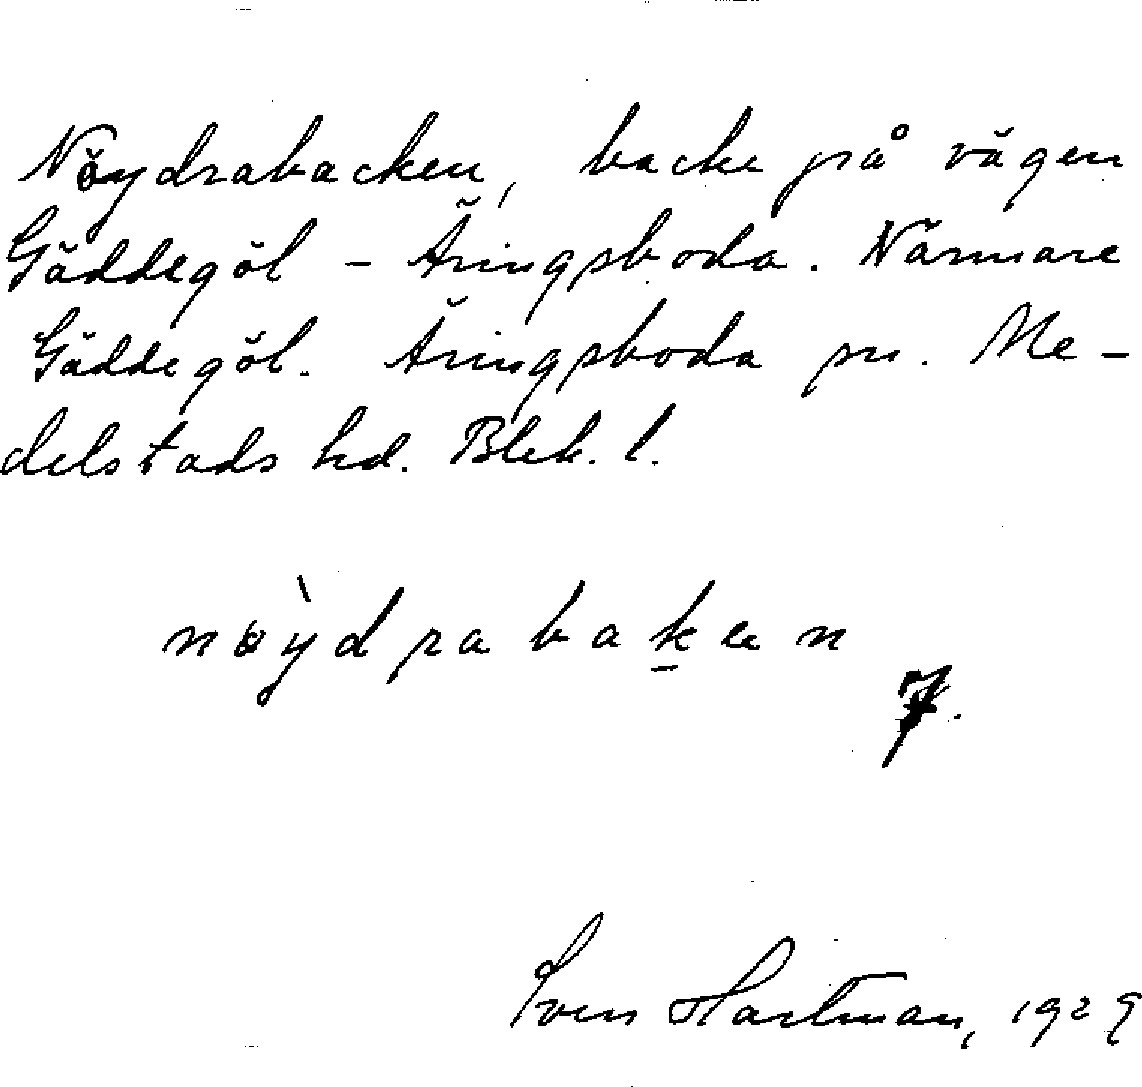 Nöydrabacken, backe på vägen
Gäddegöl – Äringsboda. Närmare
Gäddegöl. Äringsboda sn. Me-
delstads hd. Blek. l.
nøỳdrabaḵen
7.
Sven Hartman, 1929